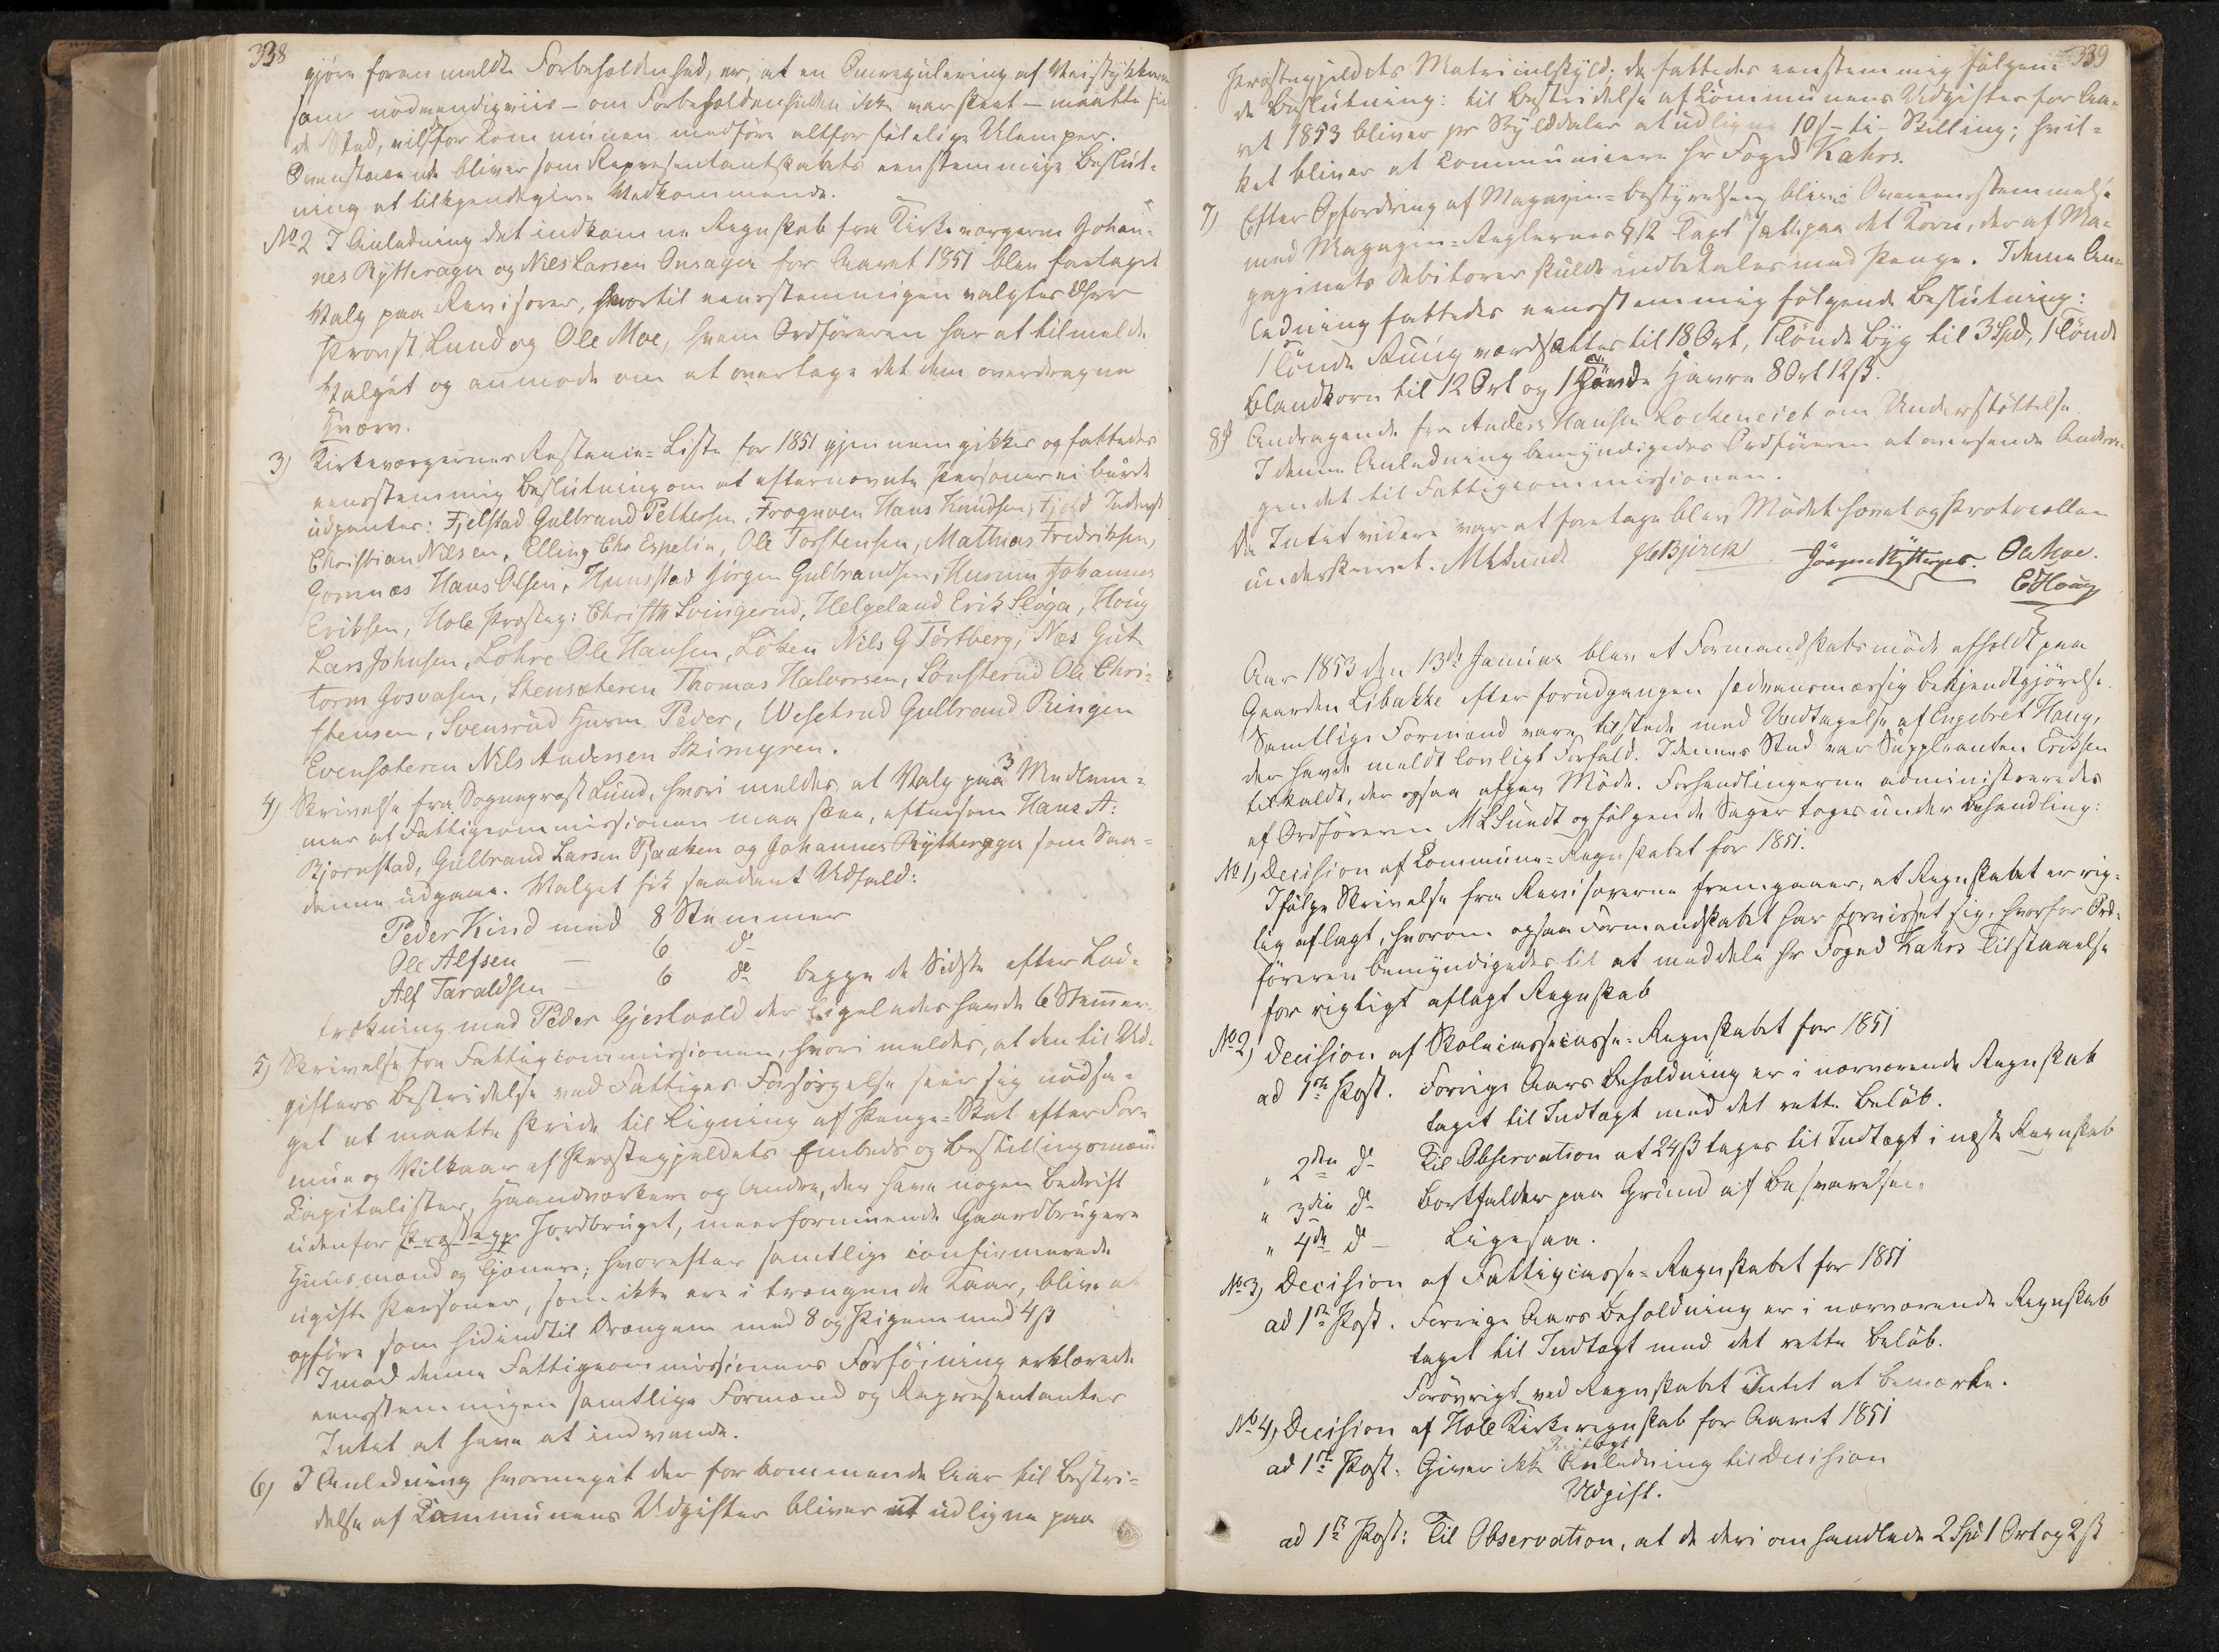 338
gjøre foranmeldte Forbeholdenhed, er, at en Omregulering af Veistykkerne
som nødvendigviis – om Forbeholdenheden ikke var skeet – maatte fin-
de Sted, vil for Kommunen medføre altfor følelige Ulemper.
Ovenstaaende bliver som Repræsentantskabets eenstemmige Beslut-
ning at tilkjendegive Vedkommende.
No 2 I Anledning det indkomne Regnskab fra Kirkeværgerne Johan-
nes Rytterager og Niels Larsen Onsager for Aaret 1851 blev foretaget
Valg paa Revisorer, hvortil eensstemmigen valgtes Herr
Provst Lund og Ole Moe, hvem Ordføreren har at tilmelde
Valget og anmode om at overtage det dem overdragne
Hverv.
3) Kirkeværgernes Restance-Liste for 1851 gjennemgikkes og fattedes
eensstemmig Beslutning om at efternævnte Personer ei burde
udpantes: Fjelstad Gulbrand Pettersen, Frognøen Hans Knudsen, Fjeld Inderst
Christian Nilsen, Elling Chr Espelin, Ole Torstensen, Mathias Fredriksen,
Gomnæs Hans Olsen, Hunsstad Jørgen Gulbrandsen, Hurum Johannes
Eriksen, Hole Præsteg: Christ H Svingerud, Helgeland Erik Sløga, Houg
Lars Johnsen, Lohre Ole Hansen, Løken Nils G Tørtberg, Næs Gut-
torm Gosvasen, Stensæteren Thomas Halvorsen, Sønsterud Ole Chri-
stensen, Svensrud Huusm Peder, Wesetrud Gulbrand Ringen
Evensæteren Nils Andersen Skimyren.
4) Skrivelse fra Sogneprest Lund, hvori meldes, at Valg paa 3 Medlem-
mer af Fattigcommissionen maa skee, eftersom Hans A:
Bjørnstad, Gulbrand Larsen Paaken og Johannes Rytterager som Saa-
danne udgaaer. Valget fik saadant Udfald:
Peder Kind med 8 Stemmer
Ole Alfsen – 6 do
Alf Taraldsen – 6 do begge de Sidste efter Lod-
trækning med Peder Gjesvold der ligeledes havde 6 Stemmer.
5) Skrivelse fra Fattigcommissionen, hvori meldes, at den til Ud-
gifters Bestridelse ved Fattiges Forsørgelse seer sig nødsa-
get at maatte skride til Ligning af Penge-Skat efter For-
mue og Vilkaar af Præstegjeldets Embeds og Bestillingsmænd
Capitalister, Haandværkere og Andre, der have nogen Bedrift
udenfor Jordbruget, meerformuende Gaardbrugere
Huusmænd og Tjenere; hvorefter samtlige confirmerede
ugifte Personer, som ikke ere i trængende Kaar, blive at
opføre som hidindtil Drengene med 8 og Pigerne med 4 ß
Imod denne Fattigcommissionens Forføining erklærede
eensstemmigen samtlige Formænd og Repræsentanter
Intet at have at indvende.
6) I Anledning hvormeget der for kommende Aar til Bestri-
delse af Communens Udgifter bliver at udligne paa
339
Præstegjeldets Matriculskyld; da fattedes eenstemmig følgen-
de Beslutning: til Bestridelse af Communens Udgifter for Aa-
ret 1853 bliver pr Skylddaler at udligne 10 ß – ti – Skilling; hvil-
ket bliver at communicere Hr Foged Kahrs.
7) Efter Opfordring af Magazin-Bestyrelsen blev i Overeensstemmelse
med Magazin-Reglernes § 12 Taxt sat paa det Korn, der af Ma-
gazinets Debitorer skulde indbetales med Penge. I denne An-
ledning fattedes eensstemmig følgende Beslutning:
1 Tønde Rug værdsættes til 18 Ort, 1 Tønde Byg til 3 Spd, 1 Tønde
Blandkorn til 12 Ort og 1 Tønde Havre 8 Ort 12 ß.
8) Andragende fra Anders Hansen Lockeneiet om Understøttelse
I denne Anledning bemyndigedes Ordføreren at oversende Andra-
gendet til Fattigcommissionen.
Da Intet videre var at foretage blev Mødet hævet og Protocollen
underskrevet. MLSundt Bjerck Jørgen Rytterager. Ole Moe.
E Houg
Aar 1853 den 13de Januar blev et Formandskabsmøde afholdt paa
Gaarden Libakke efter forudgangen sædvansmæssig Bekjendtgjørelse.
Samtlige Formænd vare tilstede med Undtagelse af Engebret Houg,
der havde meldt lovligt Forfald. I dennes Sted var Suppleanten Eriksen
tilkaldt, der ogsaa afgav Møde. Forhandlingerne administreredes
af Ordføreren MLSundt og følgende Sager toges under Behandling:
No 1) Decision af Commune-Regnskabet for 1851.
Ifølge Skrivelse fra Revisorerne fremgaaer, at Regnskabet er rig-
tig aflagt, hvorom ogsaa Formandskabet har forvisset sig, hvorfor Ord-
føreren bemyndigedes til at meddele Hr Foged Kahrs Tilstaaelse
for rigtigt aflagt Regnskab
No 2) Decision af Skolecasse-Regnskabet for 1851
ad 1ste Post. Forrige Aars Beholdning er i nærværende Regnskab
taget til Indtægt med det rette Beløb.
" 2den do Til Observation at 24 ß tages til Indtægt i næste Regnskab
" 3die do Bortfalder paa Grund af Besvarelsen.
" 4de do – Ligesaa.
No 3) Decision af Fattigcasse-Regnskabet for 1851
ad 1ste Post. Forrige Aars Beholdning er i nærværende Regnskab
taget til Indtægt med det rette Beløb.
Forøvrigt ved Regnskabet Intet at bemærke.
No 4) Decision af Hole Kirkeregnskab for Aaret 1851
Indtægt
ad 1ste Post. Giver ikke Anledning til Decision
Udgift.
ad 1ste Post: Til Observation, at de deri omhandlede 2 Spd 1 Ort og 2 ß